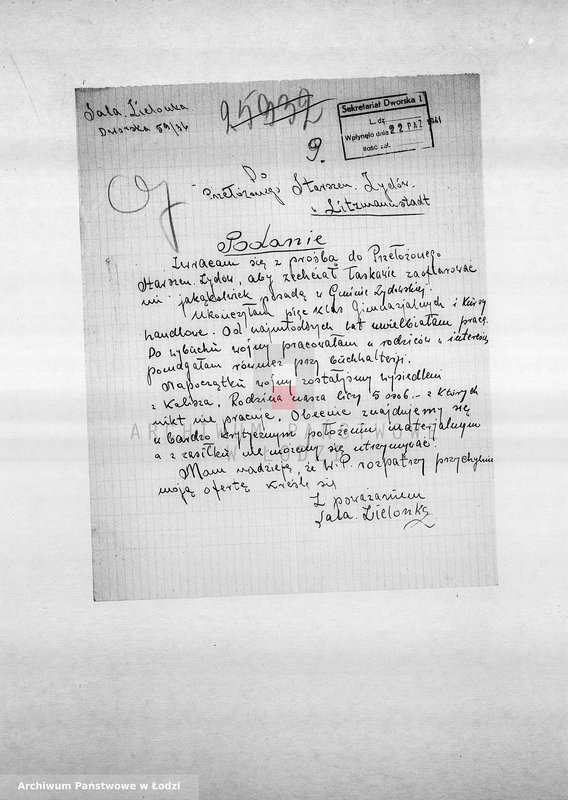 Sala Zielonka
Dworska 59/36
25932
9.
Sekretariat Dworska 1
L. dz.
Wpłynęło dnia 22 PAŹ 1941
Ilość zał.
Do
Przełożonego Starszeń. Żydów.
w Litzmannstadt
Podanie
Zwracam się z prośbą do Przełożonego
Starszeń. Żydów, aby zechciał łaskawie zaofiarować
mi jakąkolwiek posadę w Gminie Żydowskiej.
Ukończyłam pięć klas Gimnazjalnych i kursy
handlowe. Od najmłodszych lat uwielbiałam pracę.
Do wybuchu wojny pracowałam u rodziców w interesie,
pomagałam również przy buchhalterji.
Napoczątku wojny zostaliśmy wysiedleni
z Kalisza. Rodzina nasza liczy 5 osób - z których
nikt nie pracuje. Obecnie znajdujemy się
w bardzo krytycznym położeniu materjalnym
a z zasiłku nie możemy się utrzymywać.
Mam nadzieję, że W.P. rozpatrzy przychylnie
moją ofertę kreślę się
Z poważaniem
Sala Zielonka
ARCHIWUM PAŃSTWOWE
W ŁODZI
Archiwum Państwowe w Łodzi